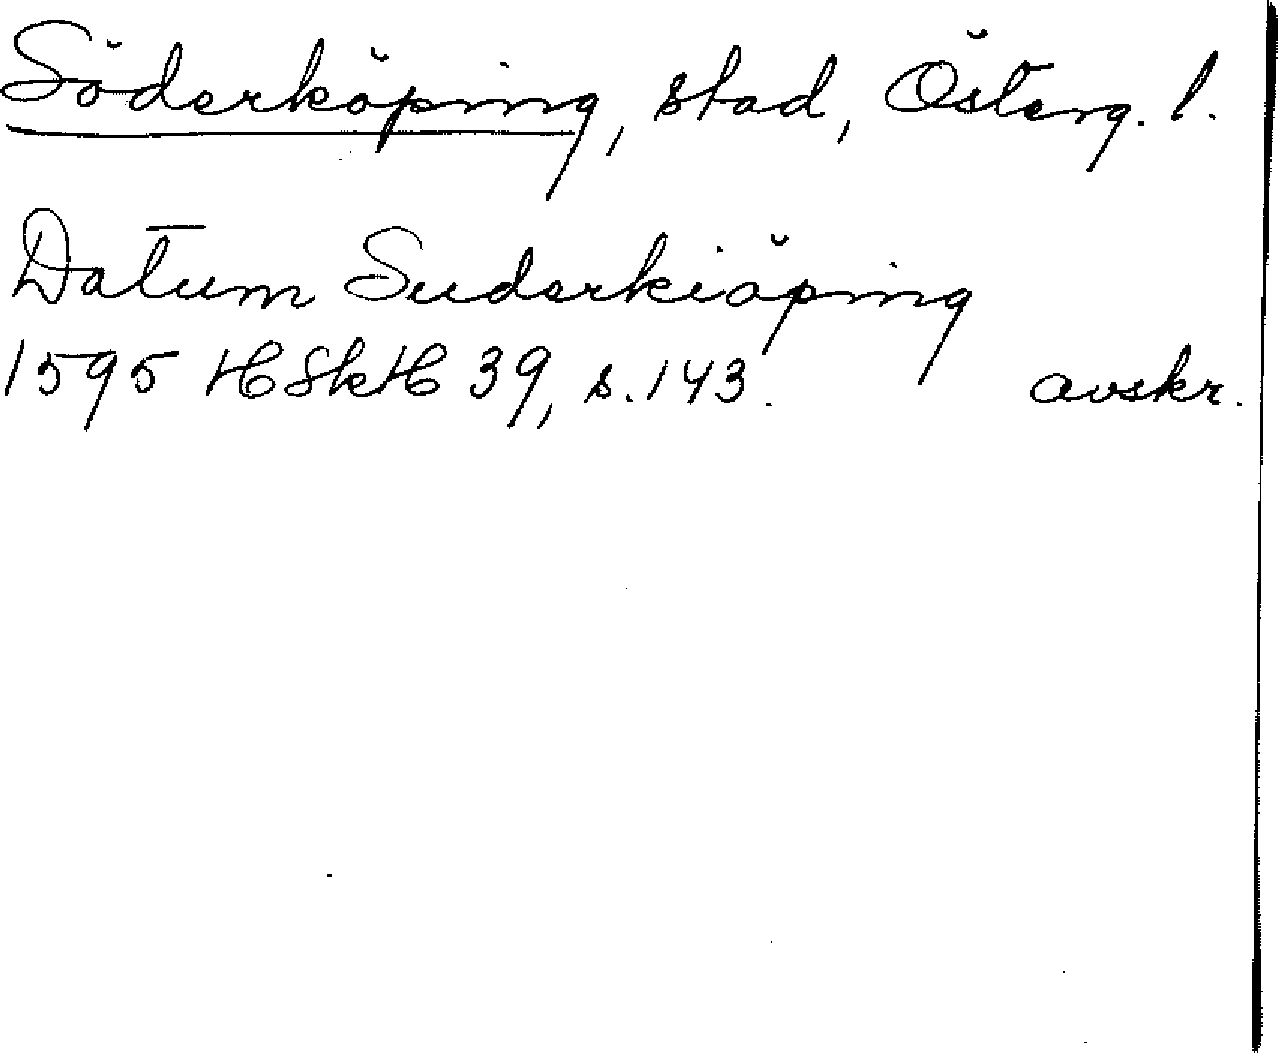 Söderköping, stad, Österg. l.
Datum Suderkiöping
1595 HSkH 39, s. 143. avskr.